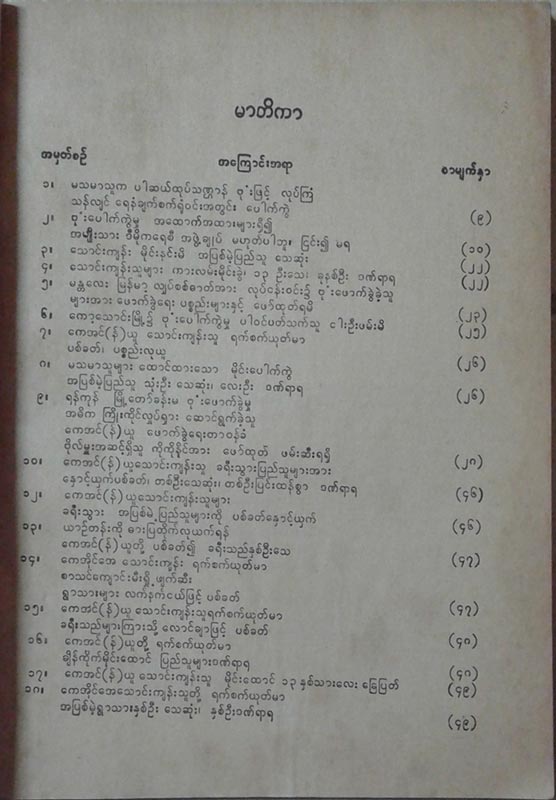 မာတိကာ
အမှတ်စဉ် အကြောင်းအရာ စာမျက်နှာ
၁။ မသမာသူက ပါဆယ်ထုပ်သဏ္ဌာန် ဗုံးဖြင့် လုပ်ကြံ
သန်လျင် ရေနံချက်စက်ရုံဝင်းအတွင်း ပေါက်ကွဲ (၉)
၂။ ဗုံးပေါက်ကွဲမှု အထောက်အထားများရှိ၍
အမျိုးသား ဒီမိုကရေစီ အဖွဲ့ချုပ် မဟုတ်ပါဘူး ငြင်း၍ မရ (၁၀)
၃။ သောင်းကျန်း မိုင်းနင်းမိ အပြစ်မဲ့ပြည်သူ သေဆုံး (၂၂)
၄။ သောင်းကျန်းသူများ ကားလမ်းမိုင်းခွဲ၊ ၁၃ ဦးသေ၊ ခုနစ်ဦး ဒဏ်ရာရ (၂၂)
၅။ မန္တလေး မြန်မာ့ လျှပ်စစ်ဓာတ်အား လုပ်ငန်းဝင်း၌ ဗုံးဖောက်ခွဲခဲ့သူ
များအား ဖောက်ခွဲရေး ပစ္စည်းများနှင့် ဖော်ထုတ်ရမိ (၂၃)
၆။ ကော့သောင်းမြို့၌ ဗုံးပေါက်ကွဲမှု ပါဝင်ပတ်သက်သူ ငါးဦးဖမ်းမိ (၂၅)
၇။ ကေအင်(န်)ယူ သောင်းကျန်းသူ ရက်စက်ယုတ်မာ
ပစ်ခတ်၊ ပစ္စည်းလုယူ (၂၆)
၈။ မသမာသူများ ထောင်ထားသော မိုင်းပေါက်ကွဲ
အပြစ်မဲ့ပြည်သူ သုံးဦး သေဆုံး၊ လေးဦး ဒဏ်ရာရ (၂၆)
၉။ ရန်ကုန် မြို့တော်ခန်းမ ဗုံးဖောက်ခွဲမှု
အဓိက ကြိုးကိုင်လှုပ်ရှား ဆောင်ရွက်ခဲ့သူ
ကေအင်(န်)ယူ ဖောက်ခွဲရေးတာဝန်ခံ
ဗိုလ်မှူးအဆင့်ရှိသူ ကိုကိုနိုင်အား ဖော်ထုတ် ဖမ်းဆီးရရှိ (၂၈)
၁၀။ ကေအင်(န်)ယူသောင်းကျန်းသူ ခရီးသွားပြည်သူများအား
နှောင့်ယှက်ပစ်ခတ်၊ တစ်ဦးသေဆုံး၊ တစ်ဦးပြင်းထန်စွာ ဒဏ်ရာရ (၄၆)
၁၂။ ကေအင်(န်)ယူသောင်းကျန်းသူများ
ခရီးသွား အပြစ်မဲ့ ပြည်သူများကို ပစ်ခတ်နှောင့်ယှက် (၄၆)
၁၃။ ယာဉ်တန်းကို ဓားပြတိုက်လုယက်ရန်
ကေအင်(န်)ယူတို့ ပစ်ခတ်၍ ခရီးသည်နှစ်ဦးသေ (၄၇)
၁၄။ ကေအိုင်အေ သောင်းကျန်း ရက်စက်ယုတ်မာ
စာသင်ကျောင်းမီးရှို့ဖျက်ဆီး
ရွာသားများ လက်နက်ငယ်ဖြင့် ပစ်ခတ် (၄၇)
၁၅။ ကေအင်(န်)ယူ သောင်းကျန်းသူရက်စက်ယုတ်မာ
ခရီးသည်များကြားသို့ လောင်ချာဖြင့် ပစ်ခတ် (၄၈)
၁၆။ ကေအင်(န်)ယူတို့ ရက်စက်ယုတ်မာ
ချိန်ကိုက်မိုင်းထောင် ပြည်သူများဒဏ်ရာရ (၄၈)
၁၇။ ကေအင်(န်)ယူ သောင်းကျန်းသူ မိုင်းထောင် ၁၃ နှစ်သားလေး ခြေပြတ် (၄၉)
၁၈။ ကေအိုင်အေသောင်းကျန်းသူတို့ ရက်စက်ယုတ်မာ
အပြစ်မဲ့ရွာသားနှစ်ဦး သေဆုံး၊ နှစ်ဦးဒဏ်ရာရ (၄၉)